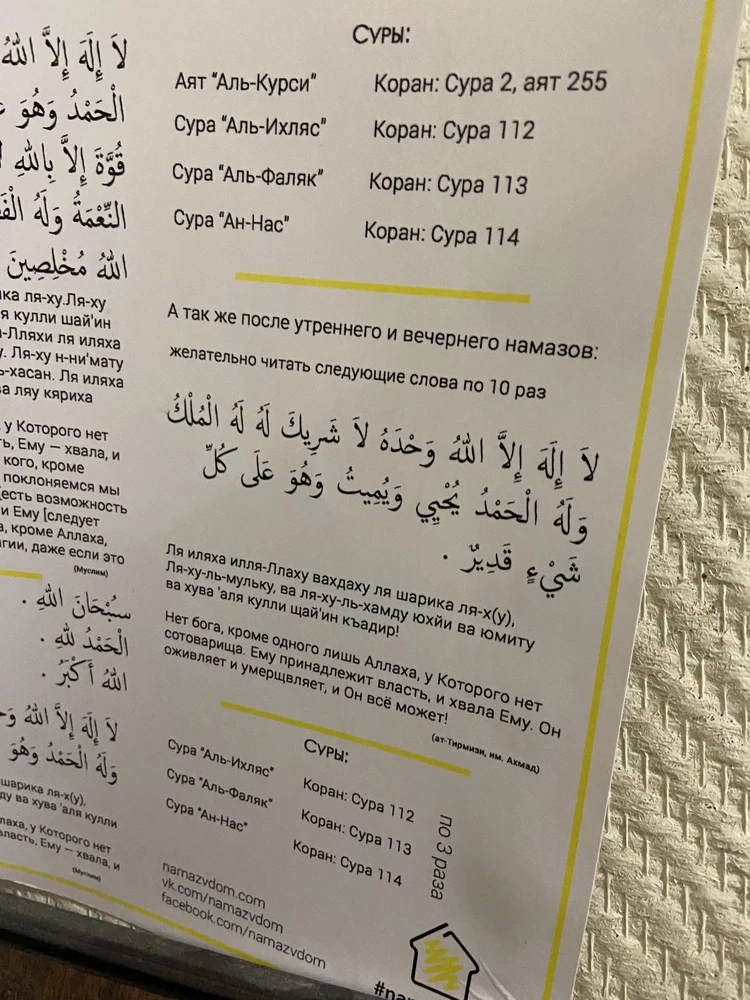 لاَ إِلَهَ إِلاَّ اللهُ
الْحَمْدُ وَهُوَ
قُوَّةَ إِلاَّ بِاللهِ
النِّعْمَةُ وَلَهُ
اللهُ مُخْلِصِينَ
ля-ху.Ля-ху
я кулли шай'ин
-Лляхи ля иляха
Ля-ху н-ни'мату
-хасан. Ля иляха
ва ляу кяриха
у Которого нет
Ему — хвала, и
кого, кроме
поклоняемся мы
[есть возможность
и Ему [следует
кроме Аллаха,
даже если это
(Муслим)
سُبْحَانَ اللهِ .
الْحَمْدُ للهِ .
اللهُ أَكْبَرُ .
لاَ إِلَهَ إِلاَّ اللهُ
وَلَهُ الْحَمْدُ وَهُوَ
шарика ля-х(у),
ва хува 'аля кулли
у Которого нет
Ему — хвала, и
(Муслим)
Суры:
Аят "Аль-Курси" Коран: Сура 2, аят 255
Сура "Аль-Ихляс" Коран: Сура 112
Сура "Аль-Фаляк" Коран: Сура 113
Сура "Ан-Нас" Коран: Сура 114
А так же после утреннего и вечернего намазов:
желательно читать следующие слова по 10 раз
لاَ إِلَهَ إِلاَّ اللهُ وَحْدَهُ لاَ شَرِيكَ لَهُ لَهُ الْمُلْكُ
وَلَهُ الْحَمْدُ يُحْيِي وَيُمِيتُ وَهُوَ عَلَى كُلِّ
شَيْءٍ قَدِيرٌ .
Ля иляха илля-Ллаху вахдаху ля шарика ля-х(у),
Ля-ху-ль-мульку, ва ля-ху-ль-хамду юхйи ва юмиту
ва хува 'аля кулли щай'ин къадир!
Нет бога, кроме одного лишь Аллаха, у Которого нет
сотоварища. Ему принадлежит власть, и хвала Ему. Он
оживляет и умерщвляет, и Он всё может!
(ат-Тирмизи, им. Ахмад)
Суры:
Сура "Аль-Ихляс" Коран: Сура 112
Сура "Аль-Фаляк" Коран: Сура 113
Сура "Ан-Нас" Коран: Сура 114
по 3 раза
namazvdom.com
vk.com/namazvdom
facebook.com/namazvdom